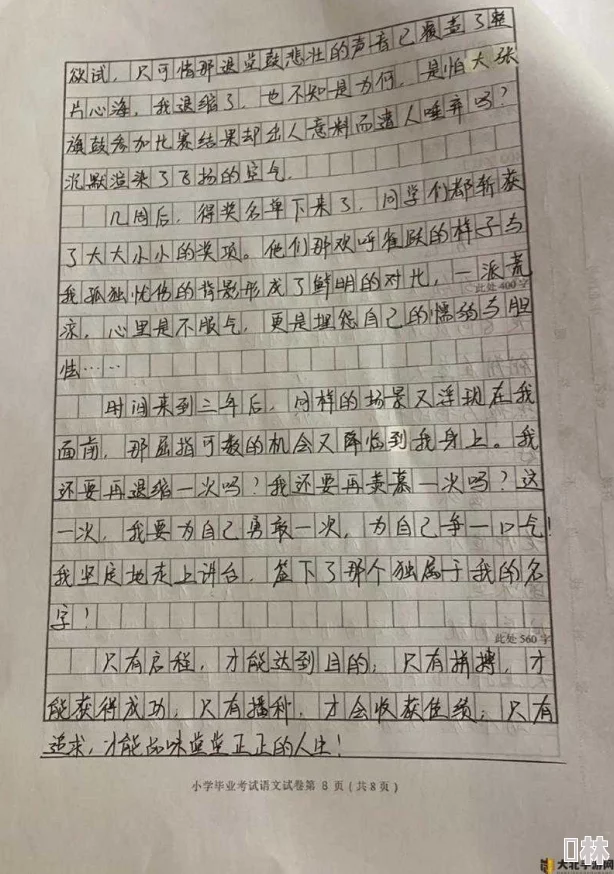 欲试，只可惜那退堂鼓悲壮的声音已覆盖了整
片心海，我退缩了，也不知是为何，是怕大张
旗鼓参加比赛结果却出人意料而遭人唾弃吗？
沉默渲染了飞扬的空气．
几周后，得奖名单下来了，同学们都斩获
了大大小小的奖项。他们那欢呼雀跃的样子与
我孤独忧伤的背影形成了鲜明的对比，一派荒
此处400字
凉，心里是不服气，更是埋怨自己的懦弱与胆
怯……
时间来到三年后，同样的场景又浮现在我
面前，那屈指可数的机会又降临到我身上。我
还要再退缩一次吗？我还要再羡慕一次吗？这
一次，我要为自己勇敢一次，为自己争一口气！
我坚定地走上讲台，签下了那个独属于我的名
字！
此处560字
只有启程，才能达到目的；只有拼搏，才
能获得成功，只有播种，才会收获佳绩；只有
追求，才能品味堂堂正正的人生！
小学毕业考试语文试卷第 8 页（共8页）
林
大北手游网